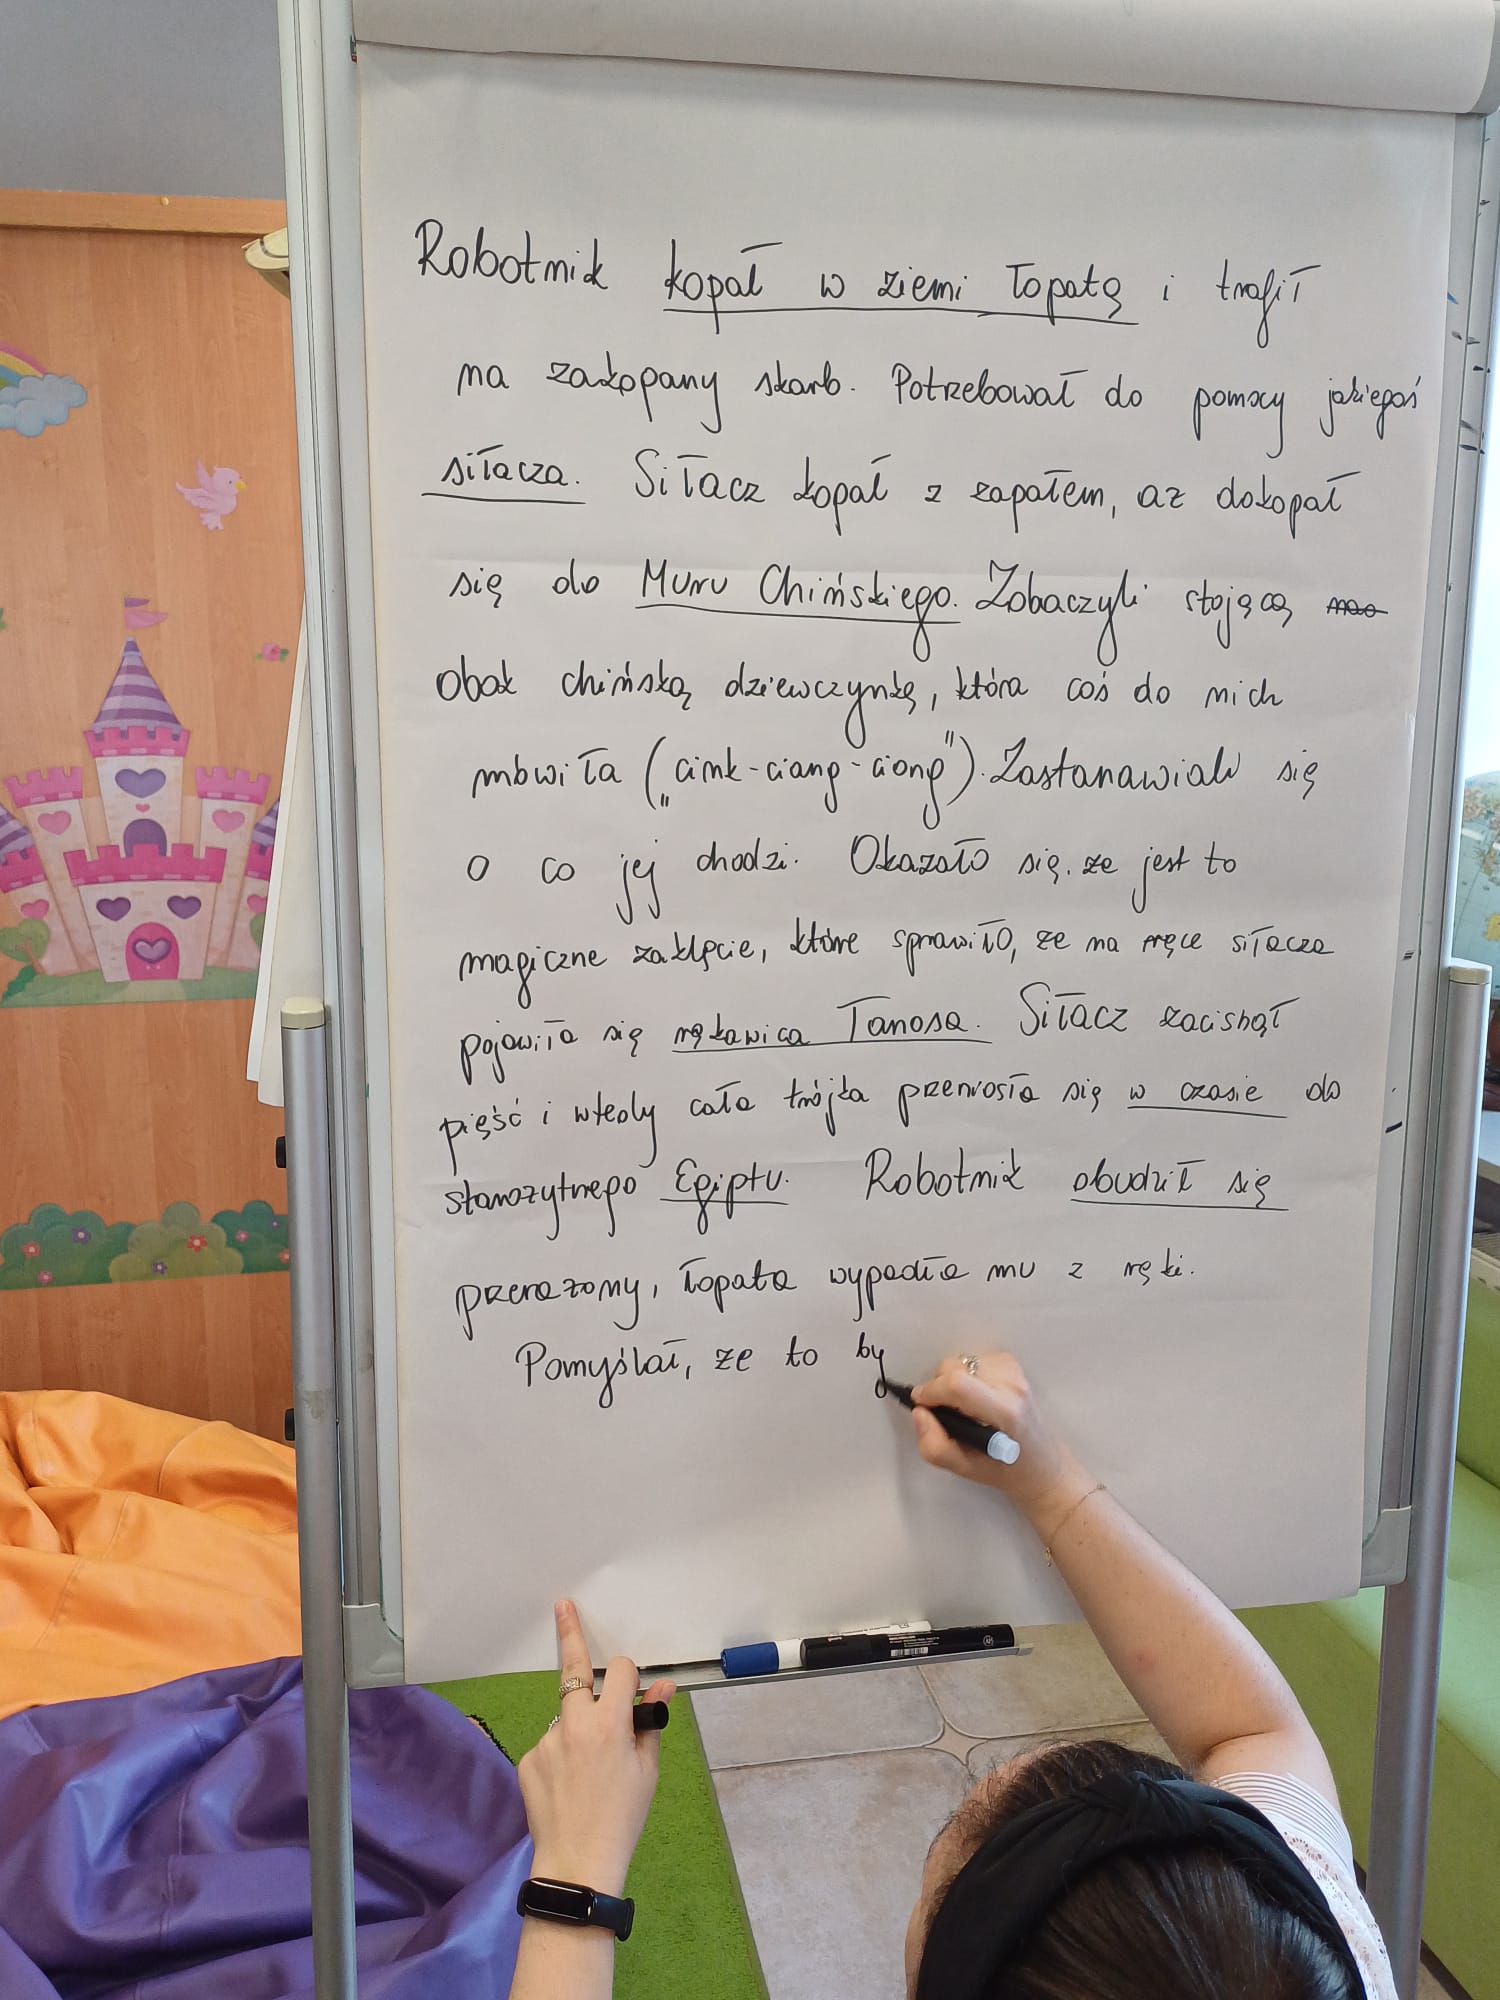 Robotnik kopał w ziemi łopatą i trafił
na zakopany skarb. Potrzebował do pomocy jakiegoś
siłacza. Siłacz kopał z zapałem, aż dokopał
się do Muru Chińskiego. Zobaczyli stojącą
obok chińską dziewczynkę, która coś do nich
mówiła („cink-ciang-ciong"). Zastanawiali się
o co jej chodzi. Okazało się, że jest to
magiczne zaklęcie, które sprawiło, że na ręce siłacza
pojawiła się rękawica Tanosa. Siłacz zacisnął
pięść i wtedy cała trójka przeniosła się w czasie do
starożytnego Egiptu. Robotnik obudził się
przerażony, łopata wypadła mu z ręki.
Pomyślał, że to by